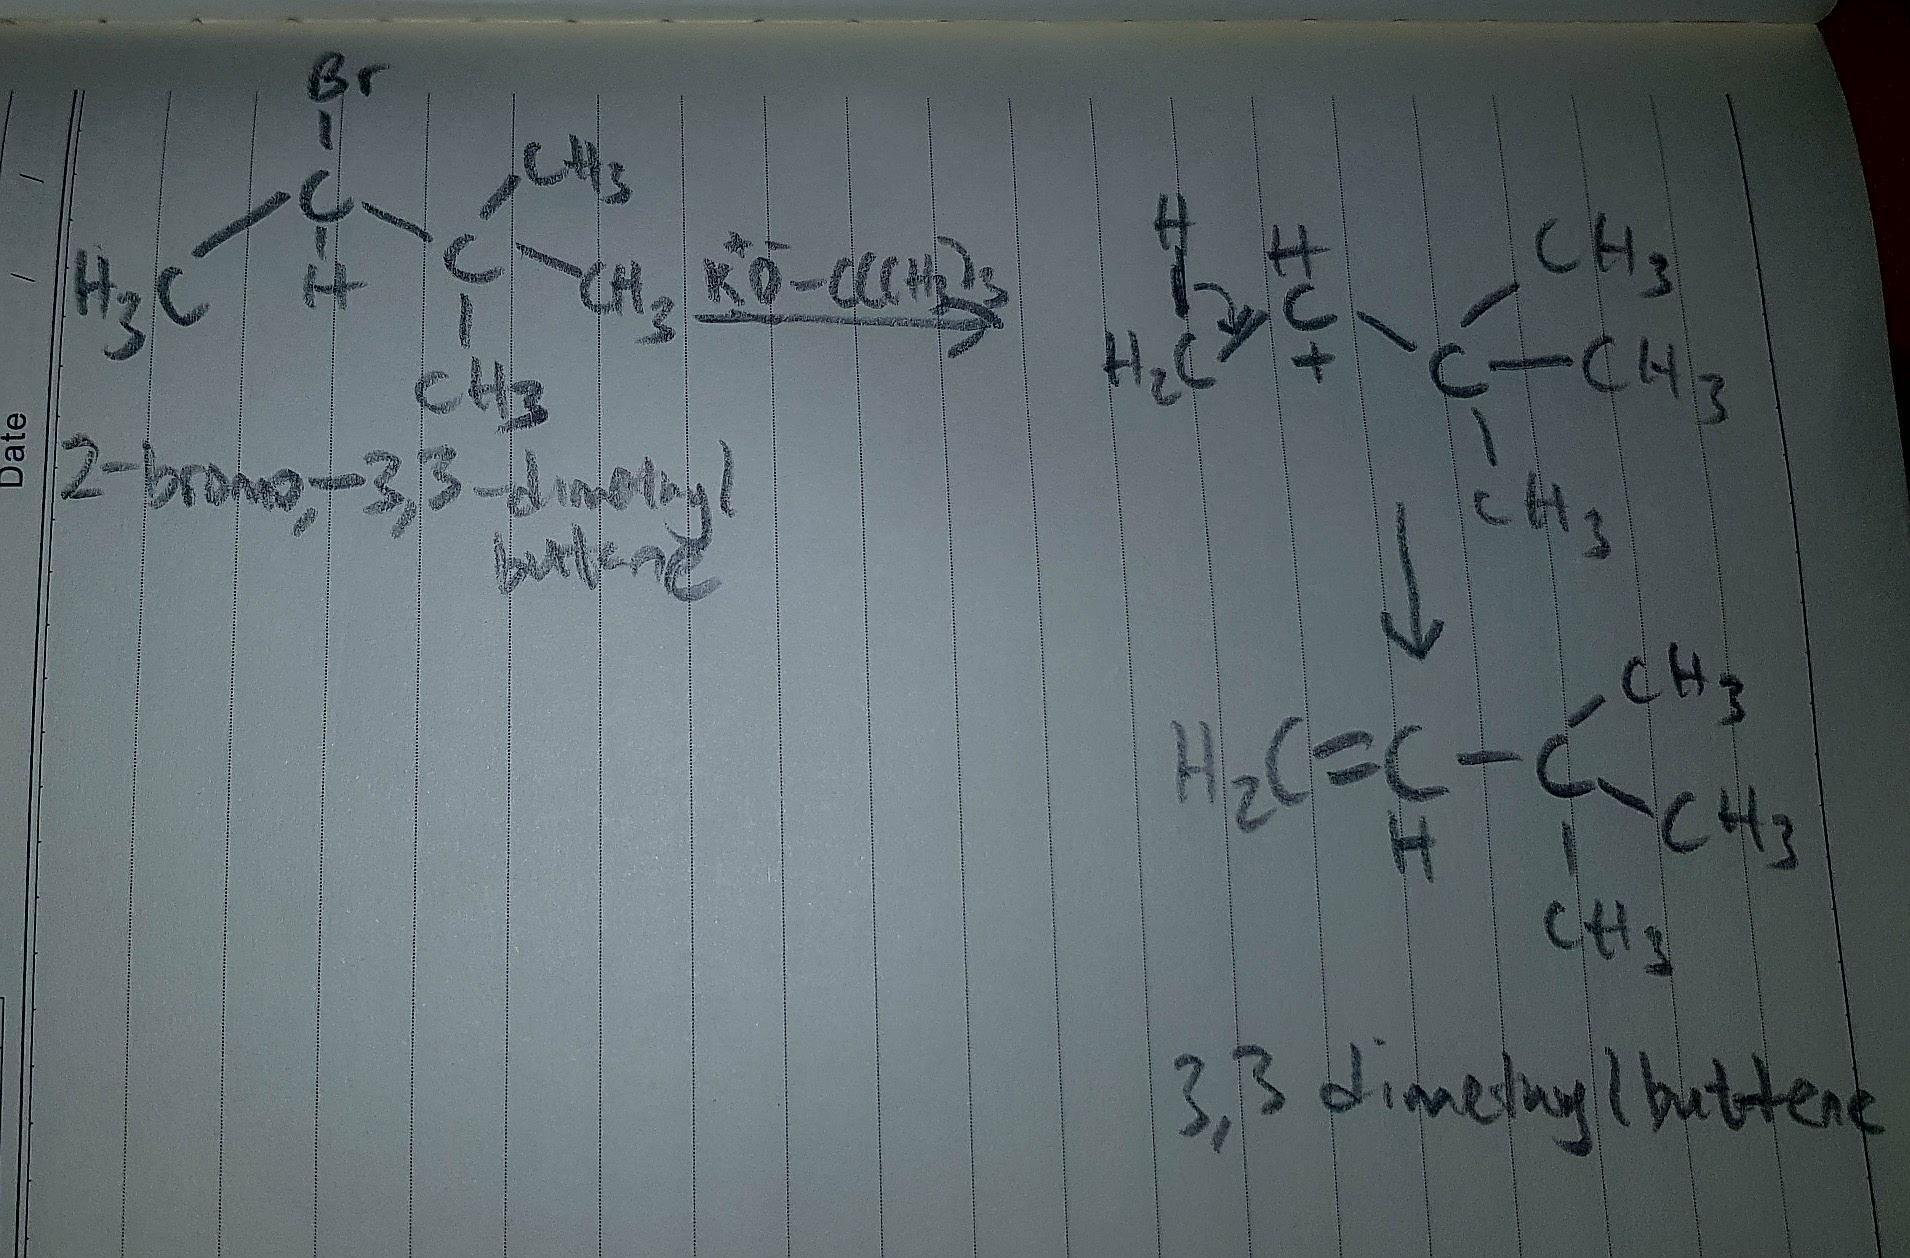 Date / /
Br
C
CH3
H3C
H
C
CH3
CH3
K+ O- -C(CH3)3
2-bromo,-3,3-dimethyl
butane
H
H
H2C
C
+
C
CH3
CH3
CH3
H2C=C-C
H
CH3
CH3
CH3
3,3 dimethylbuttene